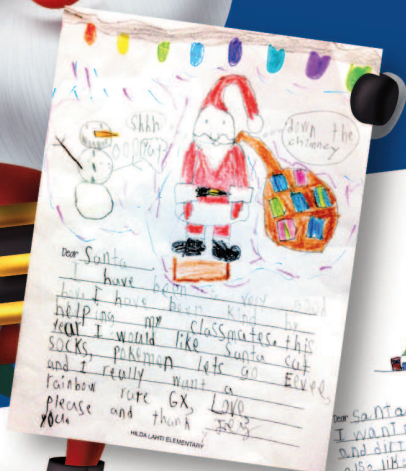 Shhh
down the
chimney
Dear Santa
I have been very good
boy I have been kind by
helping my classmates. this
year I would like Santa cat
socks, pokemon lets go Eevee,
and I really want a
rainbow rare GX,
please and thank
you.
Love
HILDA LAHTI ELEMENTARY
Dear Santa
I want
and dirt